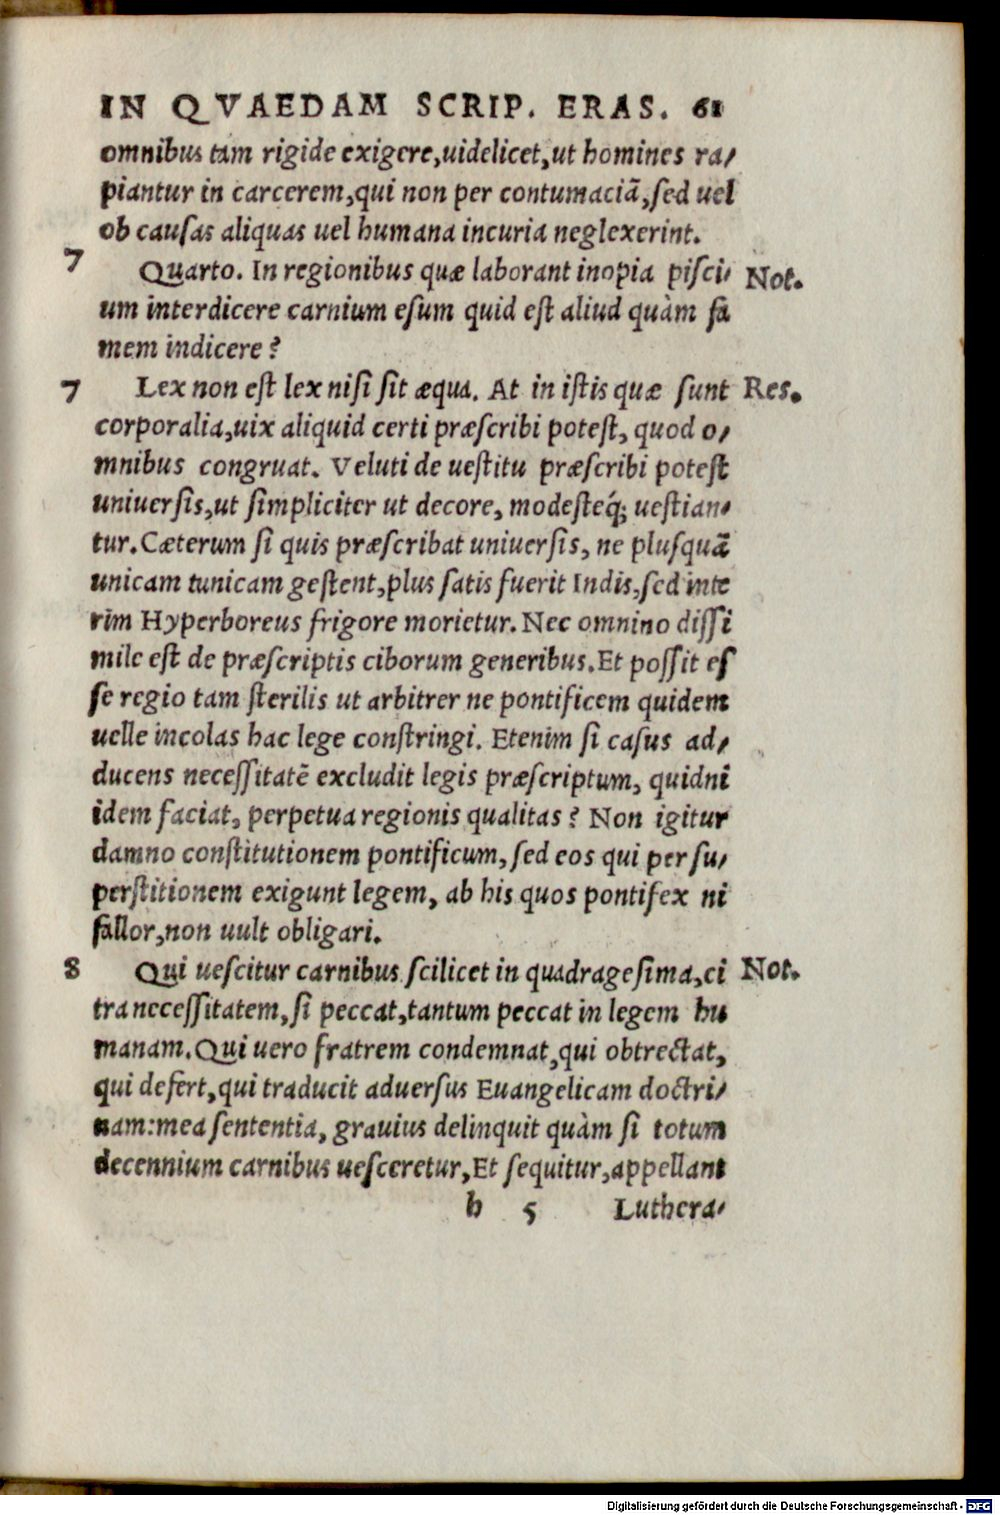 IN QVAEDAM SCRIP. ERAS. 61
omnibus tam rigide exigere,uidelicet,ut homines ra⸗
piantur in carcerem,qui non per contumaciã,sed uel
ob causas aliquas uel humana incuria neglexerint.
7 Quarto. In regionibus quæ laborant inopia pisci⸗ Not.
um interdicere carnium esum quid est aliud quàm fa
mem indicere?
7 Lex non est lex nisi sit æqua. At in istis quæ sunt Res.
corporalia,uix aliquid certi præscribi potest, quod o⸗
mnibus congruat. Veluti de uestitu præscribi potest
uniuersis,ut simpliciter ut decore, modesteq́; uestian⸗
tur. Cæterum si quis præscribat uniuersis, ne plusquã
unicam tunicam gestent,plus satis fuerit Indis,sed inte
rim Hyperboreus frigore morietur. Nec omnino dissi
mile est de præscriptis ciborum generibus. Et possit es
se regio tam sterilis ut arbitrer ne pontificem quidem
uelle incolas hac lege constringi. Etenim si casus ad⸗
ducens necessitatẽ excludit legis præscriptum, quidni
idem faciat, perpetua regionis qualitas? Non igitur
damno constitutionem pontificum, sed eos qui per su⸗
perstitionem exigunt legem, ab his quos pontifex ni
fallor,non uult obligari.
8 Qui uescitur carnibus scilicet in quadragesima,ci Not.
tra necessitatem,si peccat,tantum peccat in legem hu
manam. Qui uero fratrem condemnat,qui obtrectat,
qui defert,qui traducit aduersus Euangelicam doctri⸗
nam:mea sententia, grauius delinquit quàm si totum
decennium carnibus uesceretur,Et sequitur,appellant
h 5 Luthera⸗
Digitalisierung gefördert durch die Deutsche Forschungsgemeinschaft - DFG